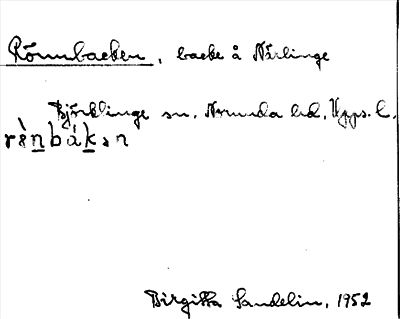 Rönnbacken, backe å Närlinge
Björklinge sn, Norunda hd, Upps. l.
rǜnbákən
Birgitta Sandelin, 1952